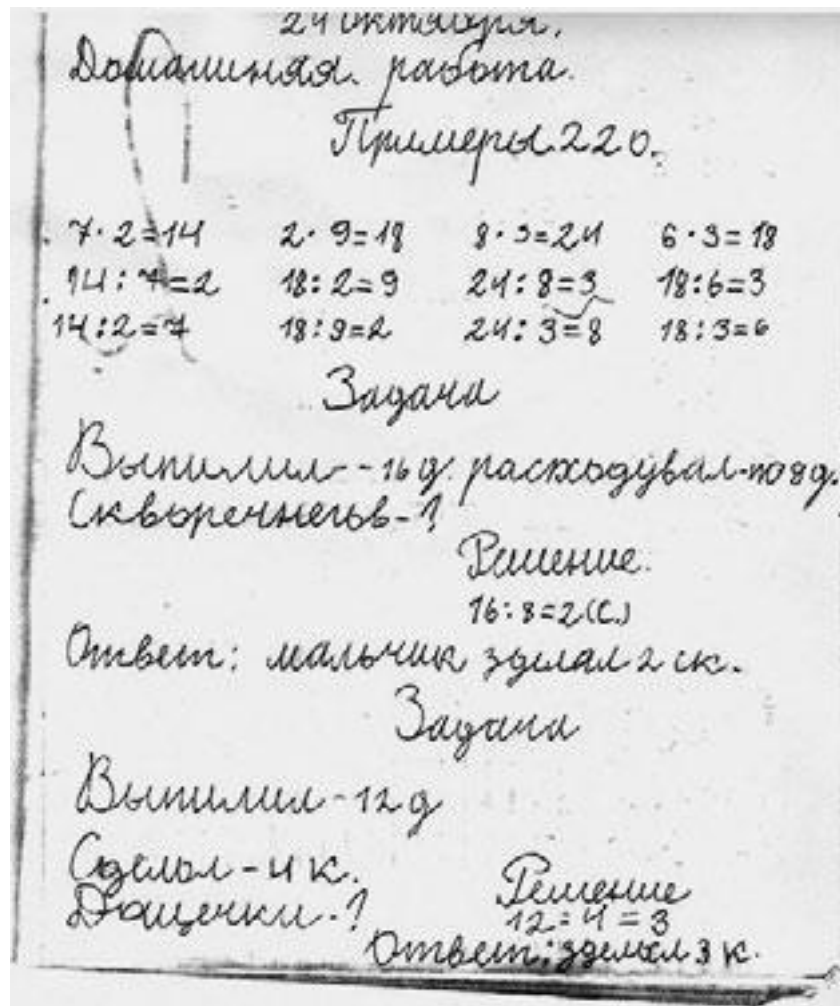 24 октября.
Домашняя работа.
Примеры 220.
7·2=14 2·9=18 8·3=24 6·3=18
14:7=2 18:2=9 24:8=3 18:6=3
14:2=7 18:9=2 24:3=8 18:3=6
Задача
Выпилил - 16 д. расходувал - по 8 д.
Скворечнегьв - ?
Решение.
16:8=2(с.)
Ответ: мальчик зделал 2 ск.
Задача
Выпилил - 12 д
Сделол - 4 к.
Дощечки - ?
Решение
12:4=3
Ответ: зделал 3 к.